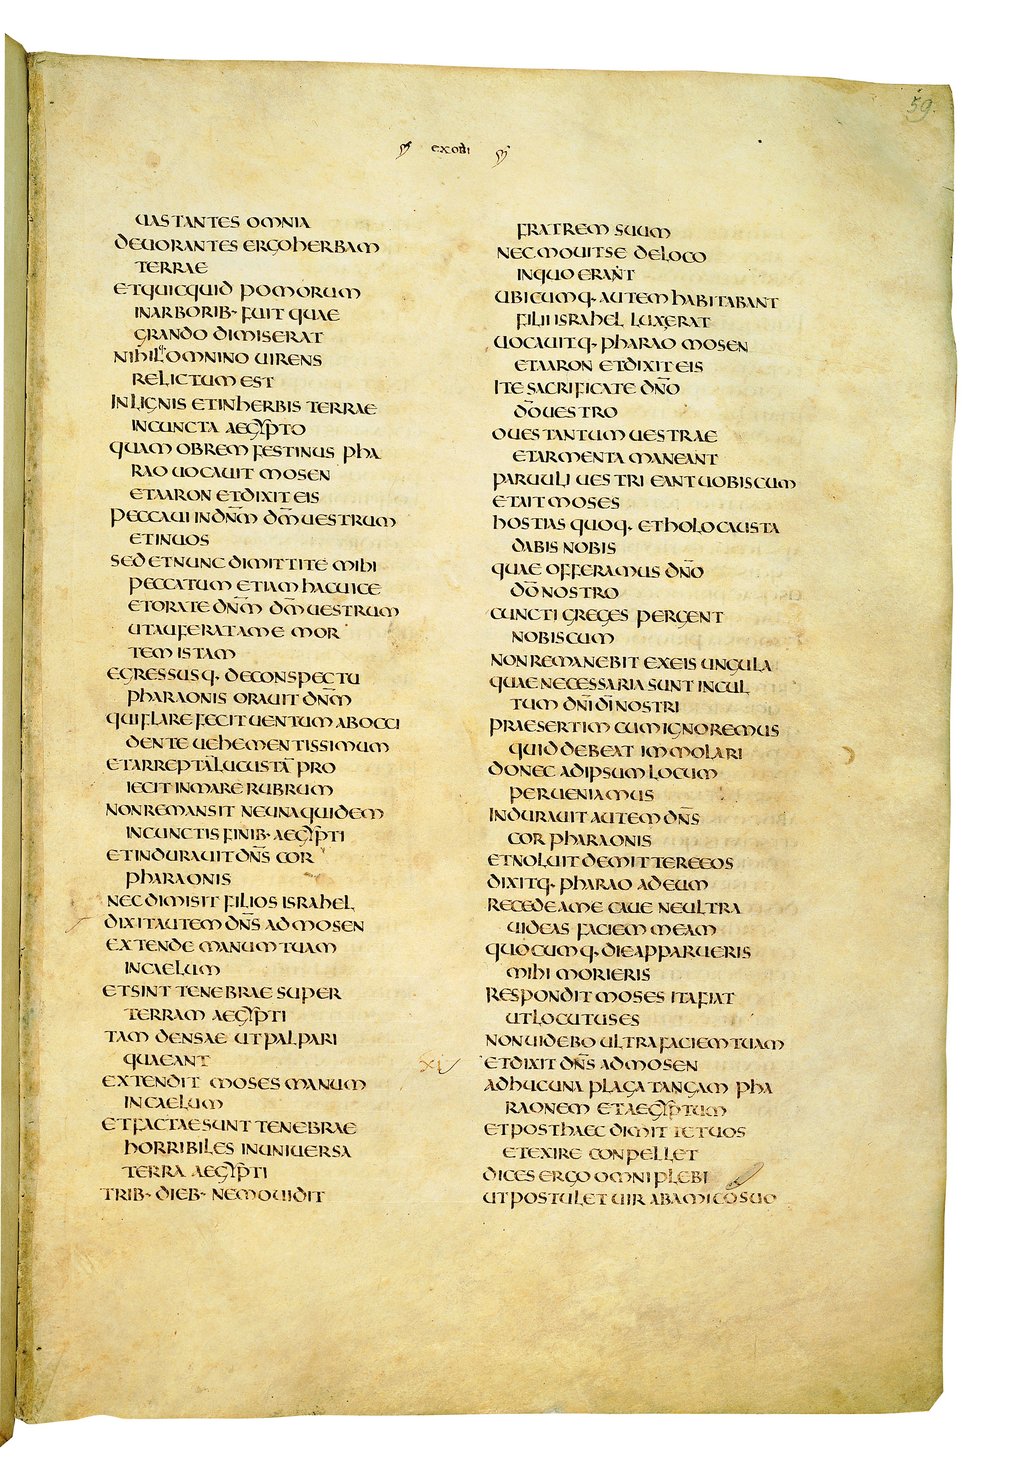 59.
exodi
UASTANTES OMNIA
DEUORANTES ERGO HERBAM
TERRAE
ET QUICQUID POMORUM
IN ARBORIB· FUIT QUAE
GRANDO DIMISERAT
NIHILq· OMNINO UIRENS
RELICTUM EST
IN LIGNIS ET IN HERBIS TERRAE
IN CUNCTA AEGYPTO
QUAM OBREM FESTINUS PHA
RAO UOCAUIT MOSEN
ET AARON ET DIXIT EIS
PECCAUI IN DN̄M D̄M UESTRUM
ET IN UOS
SED ET NUNC DIMITTITE MIHI
PECCATUM ETIAM HAC UICE
ET ORATE DN̄M D̄M UESTRUM
UT AUFERAT A ME MOR
TEM ISTAM
EGRESSUSQ· DE CONSPECTU
PHARAONIS ORAUIT DN̄M
QUI FLARE FECIT UENTUM AB OCCI
DENTE UEHEMENTISSIMUM
ET ARREPTĀ LUCUSTĀ PRO
IECIT IN MARE RUBRUM
NON REMANSIT NE UNA QUIDEM
IN CUNCTIS FINIB· AEGYPTI
ET INDURAUIT DN̄S COR
PHARAONIS
NEC DIMISIT FILIOS ISRAHEL
DIXIT AUTEM DN̄S AD MOSEN
EXTENDE MANUM TUAM
IN CAELUM
ET SINT TENEBRAE SUPER
TERRAM AEGYPTI
TAM DENSAE UT PALPARI
QUAEANT
EXTENDIT MOSES MANUM
IN CAELUM
ET FACTAE SUNT TENEBRAE
HORRIBILES IN UNIUERSA
TERRA AEGYPTI
TRIB· DIEB· NEMO UIDIT
FRATREM SUUM
NEC MOUIT SE DE LOCO
IN QUO ERANT
UBICUMQ· AUTEM HABITABANT
FILII ISRAHEL LUX ERAT
UOCAUITQ· PHARAO MOSEN
ET AARON ET DIXIT EIS
ITE SACRIFICATE DN̄O
D̄O UESTRO
OUES TANTUM UESTRAE
ET ARMENTA MANEANT
PARUULI UESTRI EANT UOBISCUM
ET AIT MOSES
HOSTIAS QUOQ· ET HOLOCAUSTA
DABIS NOBIS
QUAE OFFERAMUS DN̄O
D̄O NOSTRO
CUNCTI GREGES PERGENT
NOBISCUM
NON REMANEBIT EX EIS UNGULA
QUAE NECESSARIA SUNT IN CUL
TUM DN̄I D̄I NOSTRI
PRAESERTIM CUM IGNOREMUS
QUID DEBEAT IMMOLARI
DONEC AD IPSUM LOCUM
PERUENIAMUS
INDURAUIT AUTEM DN̄S
COR PHARAONIS
ET NOLUIT DEMITTERE EOS
DIXITQ· PHARAO AD EUM
RECEDE A ME CAUE NE ULTRA
UIDEAS FACIEM MEAM
QUOCUMQ· DIE APPARUERIS
MIHI MORIERIS
RESPONDIT MOSES ITA FIAT
UT LOCUTUS ES
NON UIDEBO ULTRA FACIEM TUAM
ET DIXIT DN̄S AD MOSEN
ADHUC UNA PLAGA TANGAM PHA
RAONEM ET AEGYPTUM
ET POST HAEC DIMITTET UOS
ET EXIRE CONPELLET
DICES ERGO OMNI PLEBI
UT POSTULET UIR AB AMICO SUO